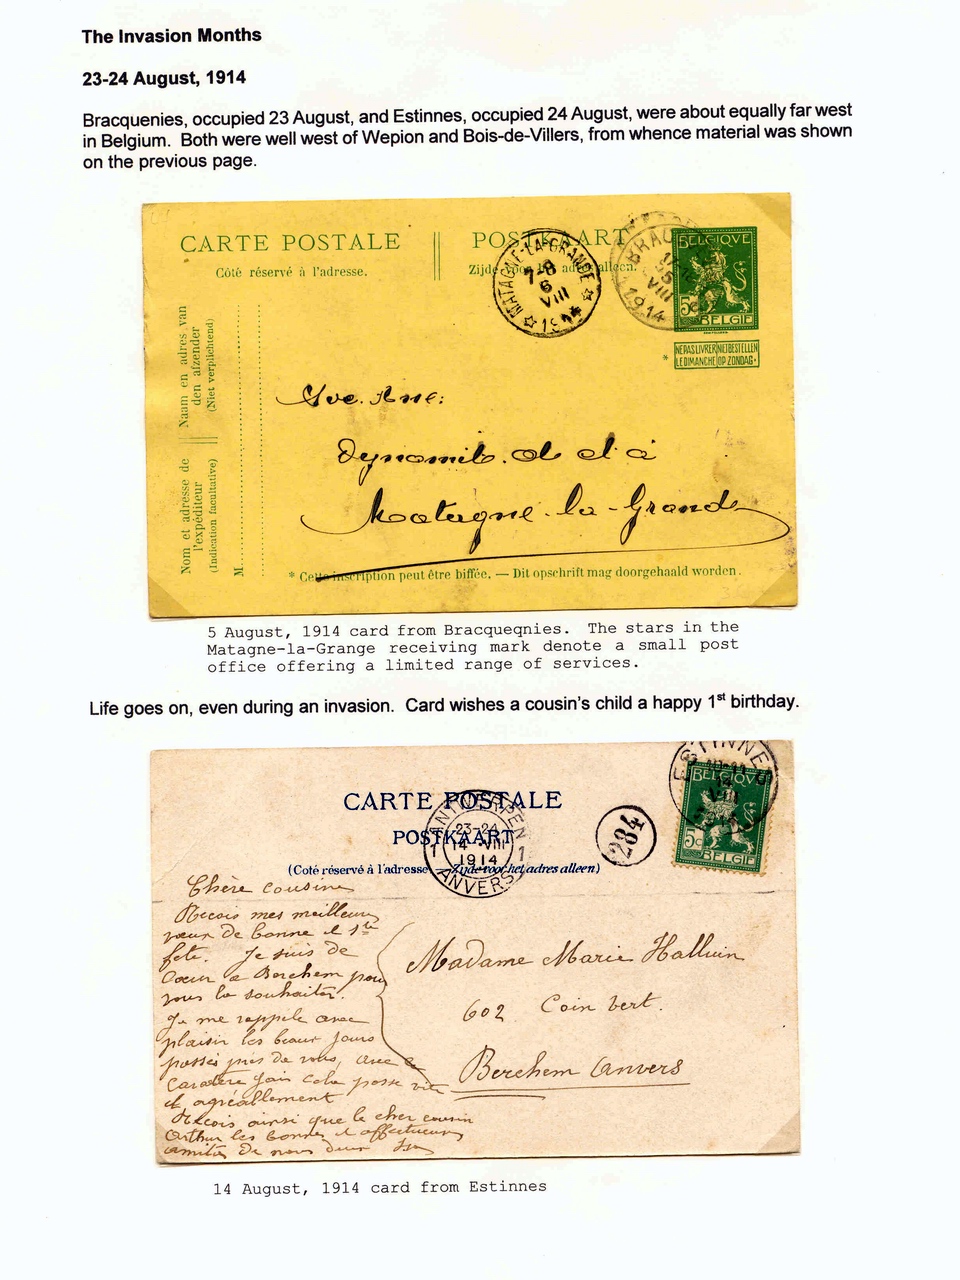 The Invasion Months
23-24 August, 1914
Bracquenies, occupied 23 August, and Estinnes, occupied 24 August, were about equally far west
in Belgium. Both were well west of Wepion and Bois-de-Villers, from whence material was shown
on the previous page.
CARTE POSTALE
POSTKAART
Côté réservé à l'adresse.
Zijde voor het adres alleen.
MATAGNE-LA-GRANDE
7-8
6
VIII
1914
BRACQ
VIII
1914
BELGIQUE
5c
BELGIË
NE PAS LIVRER NIET BESTELLEN
* LE DIMANCHE OP ZONDAG.
Naam en adres van
den afzender
(Niet verplichtend)
Nom et adresse de
l'expéditeur
(Indication facultative)
M
Sve. Ane:
Dynamite. de et à
Matagne-la-Grande
* Cette inscription peut être biffée. — Dit opschrift mag doorgehaald worden.
5 August, 1914 card from Bracqueqnies. The stars in the
Matagne-la-Grange receiving mark denote a small post
office offering a limited range of services.
Life goes on, even during an invasion. Card wishes a cousin's child a happy 1st birthday.
CARTE POSTALE
POSTKAART
(Coté réservé à l'adresse — Zijde voor het adres alleen)
ANTWERPEN
23-24
1 14 VIII 1
1914
ANVERS
284
ESTINNES
14
VIII
BELGIQUE
5c
BELGIË
Chère cousine
Recois mes meilleurs
vœux de bonne et 1re
fête. Je suis de
Cœur a Berchem pour
vous la souhaiter.
Je me rappele avec
plaisir les beaux jours
passés près de vous, avec
Caractère gai cela passe vite
et agréablement
Recois ainsi que le cher cousin
Arthur les bonnes et affectueuses
amitiés de nous deux
Madame Marie Halluin
602 Coin vert.
Berchem Anvers
14 August, 1914 card from Estinnes